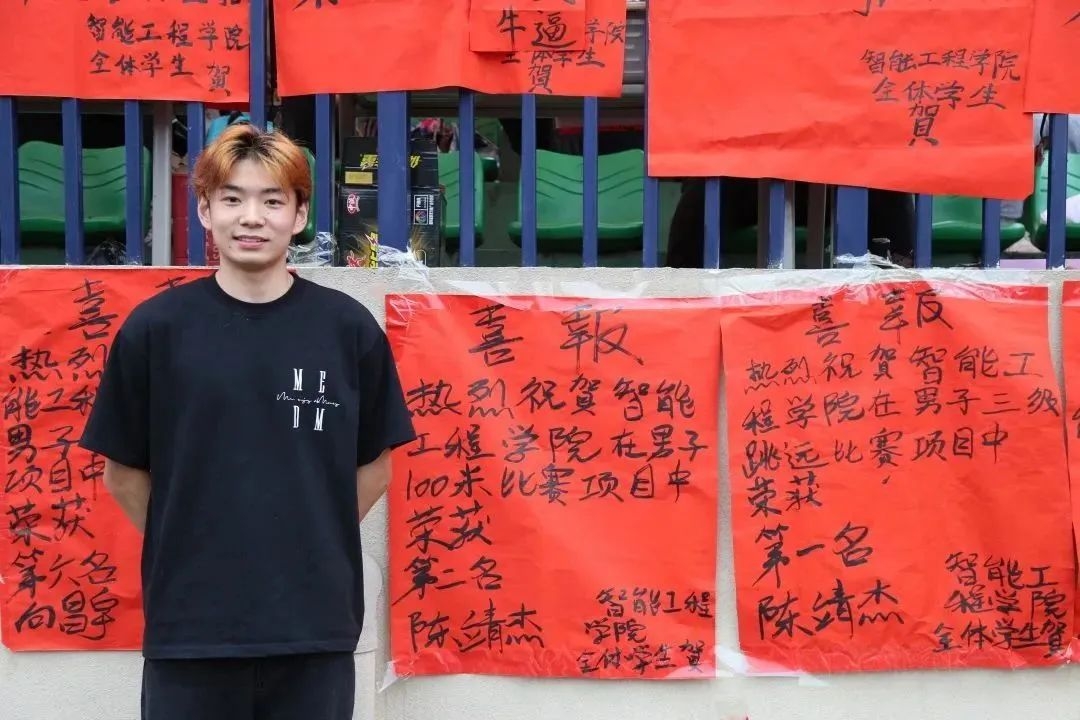 智能工程学院
全体学生
賀
牛逼
学院
全体学生
賀
智能工程学院
全体学生
賀
喜
热烈
能工程
男子
项目中
荣获
第六名
向昌宇
喜報
热烈祝賀智能
工程学院在男子
100米比赛项目中
荣获
第二名
陈靖杰
智能工程
学院
全体学生賀
喜報
热烈祝賀智能工
程学院在男子三级
跳远比赛项目中
荣获
第一名
陈靖杰
智能工
程学院
全体学生賀
M E
D M